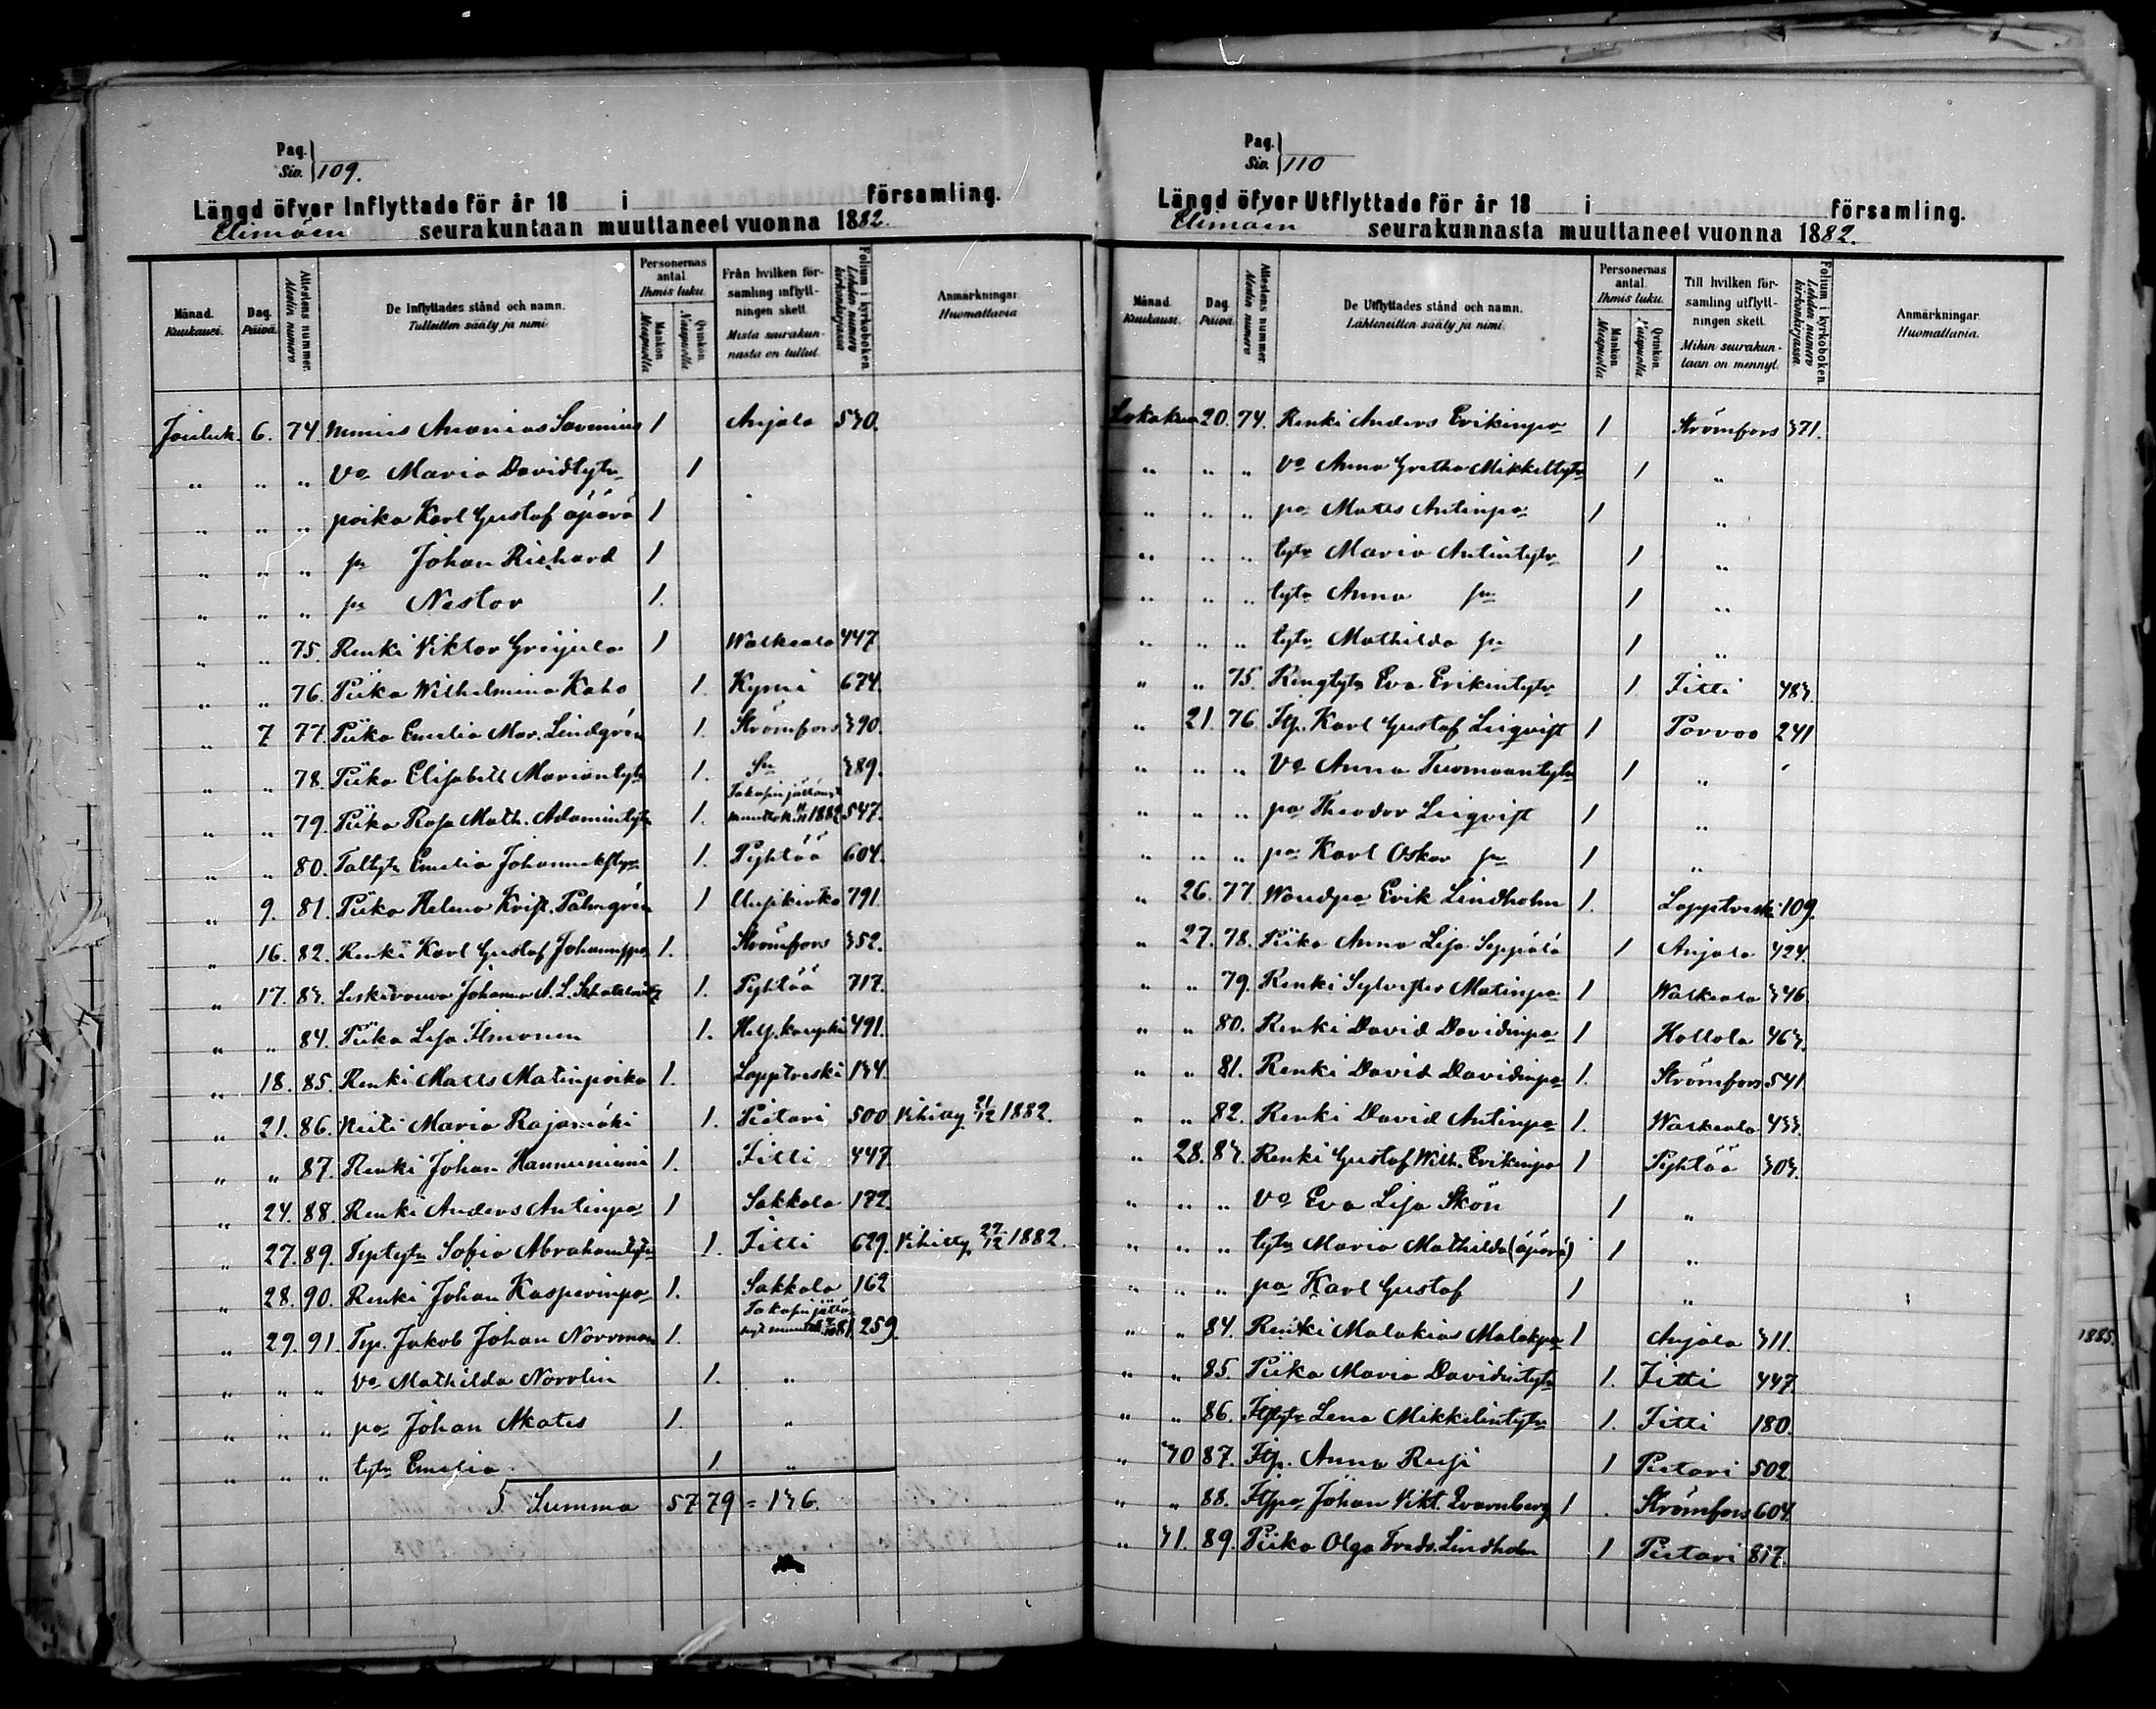 Pag.
Siv. 109.
Längd öfver Inflyttade för år 18 i församling.
Elimäen seurakuntaan muuttaneet vuonna 1882.
Månad. Kuukausi.
Dag. Päivä.
Attestens nummer. Alestin numero
De Inflyttades stånd och namn.
Tulleitten sääty ja nimi
Personernas antal. Ihmis luku.
Mankön. Miespuolia
Qvinkön. Naispuolia
Från hvilken församling inflyttningen skett.
Mistä seurakunnasta on tullut.
Folium i kyrkoboken. Lehden numero kirkonkirjassa
Anmärkningar. Huomattavia
Jouluk. 6. 74 Ananias Savenius 1 Anjala 530.
" " " Vo Maria Davidtytr 1
" " " poika Karl Gustaf äpärä 1
" " " pr Johan Richard 1
" " " pr Nestor 1.
" " 75. Renki Viktor Greijula 1 Walkeala 447
" " 76. Piika Wilhelmina Kaho 1. Kymi 674.
" 7 77. Piika Emelia Mar. Lindgrén 1. Strömfors 390.
" " 78. Piika Elisabett Mariantytr 1. 389.
" " 79. Piika Rosa Math. Adamintytr 1. 1882 547.
" " 80. Taltytr Emelia 1. Pyhtää 604.
" 9. 81. Piika Helena Krist. Palmgrén 1 Uusikirko 791.
" 16. 82. Renki Karl Gustaf 1. Strömfors 352.
" 17. 83. Leskirouva Johanna A. L. 1. Pyhtää 717.
" " 84. Piika Lisa Ilmonen 1. Hels. kaupki 491.
" 18. 85. Renki Matts Matinpoika 1. Lapptreski 134.
" 21. 86. Neiti Maria Rajamäki 1. Pietari 500 Vihitty 21/12 1882.
" " 87. Renki Johan Hannuniemi 1. Iitti 447.
" 24. 88. Renki Anders Antinpo 1 Sakkola 172.
" 27. 89. Torptytr Sofia Abrahamtytr 1. Iitti 629. Vihitty 27/12 1882.
" 28. 90. Renki Johan Kasperinpo 1. Sakkola 162
" 29. 91. Torp. Jakob Johan Norrman 1. 259.
" " " Vo Mathilda Norrlin 1. "
" " " po Johan Mates 1. "
" " " tytr Emelia 1. "
Summa 57 79 = 136.
Pag.
Siv. 110
Längd öfver Utflyttade för år 18 i församling.
Elimäen seurakunnasta muuttaneet vuonna 1882.
Månad. Kuukausi.
Dag. Päivä.
Attestens nummer. Alestin numero
De Utflyttades stånd och namn.
Lähteneitten sääty ja nimi.
Personernas antal. Ihmis luku.
Mankön. Miespuolia
Qvinkön. Naispuolia
Till hvilken församling utflyttningen skett.
Mihin seurakuntaan on mennyt.
Folium i kyrkoboken. Lehden numero kirkonkirjassa
Anmärkningar. Huomattavia.
Lokakuu 20. 74. Renki Anders Erikinpo 1 Strömfors 371.
" " " Vo Anna Gretha Mikkeltytr 1 "
" " " po Matts Antinpo 1 "
" " " tytr Maria Antintytr 1 "
" " " tytr Anna pr 1 "
" " " tytr Mathilda pr 1 "
" " 75. Rengtytr Eva Erikintytr 1 Iitti 483.
" 21. 76. Itp. Karl Gustaf Liiqvist 1 Porvoo 241
" " " Vo Anna Tuomaantytr 1 "
" " " po Theodor Liiqvist 1 "
" " " po Karl Oskar pr 1 "
" 26. 77. Woudpo Erik Lindholm 1. Lapptreski 109.
" 27. 78. Piika Anna Lisa Seppälä 1 Anjala 424.
" " 79. Renki Sylvester Matinpo 1 Walkeala 346.
" " 80. Renki David Davidinpo 1 Hollola 463.
" " 81. Renki David Davidinpo 1. Strömfors 541
" " 82. Renki David Antinpo 1. Walkeala 433.
" 28. 83. Renki Gustaf Wilh. Erikinpo 1 Pyhtää 303.
" " " Vo Eva Lisa Skön 1 "
" " " tytr Maria Mathilda (äpärä) 1 "
" " " po Karl Gustaf 1 "
" " 84. Renki Malakias Malakpo 1 Anjala 311.
" " 85. Piika Maria Davidintytr 1. Iitti 447.
" " 86. Itptytr Lena Mikkelintytr 1. Iitti 180.
" 30 87. Itp. Anna Rusi 1 Pietari 502
" " 88. Itppo Johan Vikt. Qvarnberg 1 Strömfors 604
" 31. 89. Piika Olga Freds. Lindholm 1 Pietari 817.
1885.